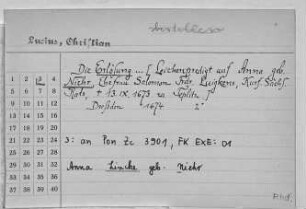 Lucius, Christian
Die Erlösung ... / Leichenpredigt auf Anna geb.
Nichr, Ehefrau Salomon Frdr. Luigkens, Kurf. Sächs.
Rats, † 13. IX. 1673 zu Teplitz /
Dresden 1674 2°
1 2 3 4
5 6 7 8
9 10 11 12
13 14 15 16
17 18 19 20
21 22 23 24 3: an Pon Zc 3901, FK EXE: 01
25 26 27 28
29 30 31 32 Anna Lincke geb. Nichr
33 34 35 36
37 38 39 40